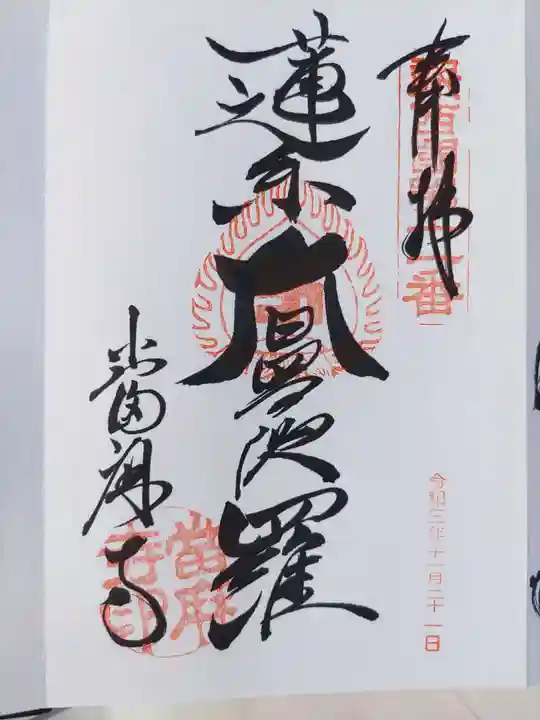 奉拝
蓮糸大曼陀羅
當麻寺
當麻寺印
令和三年十一月二十一日